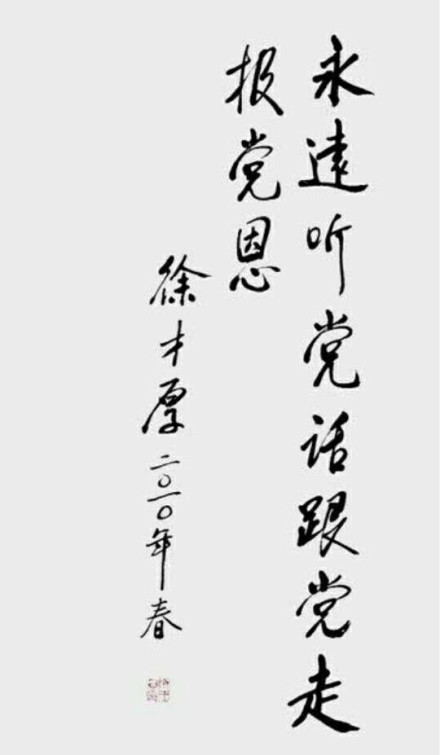 永遠听党话跟党走
报党恩
徐才厚二〇一〇年春